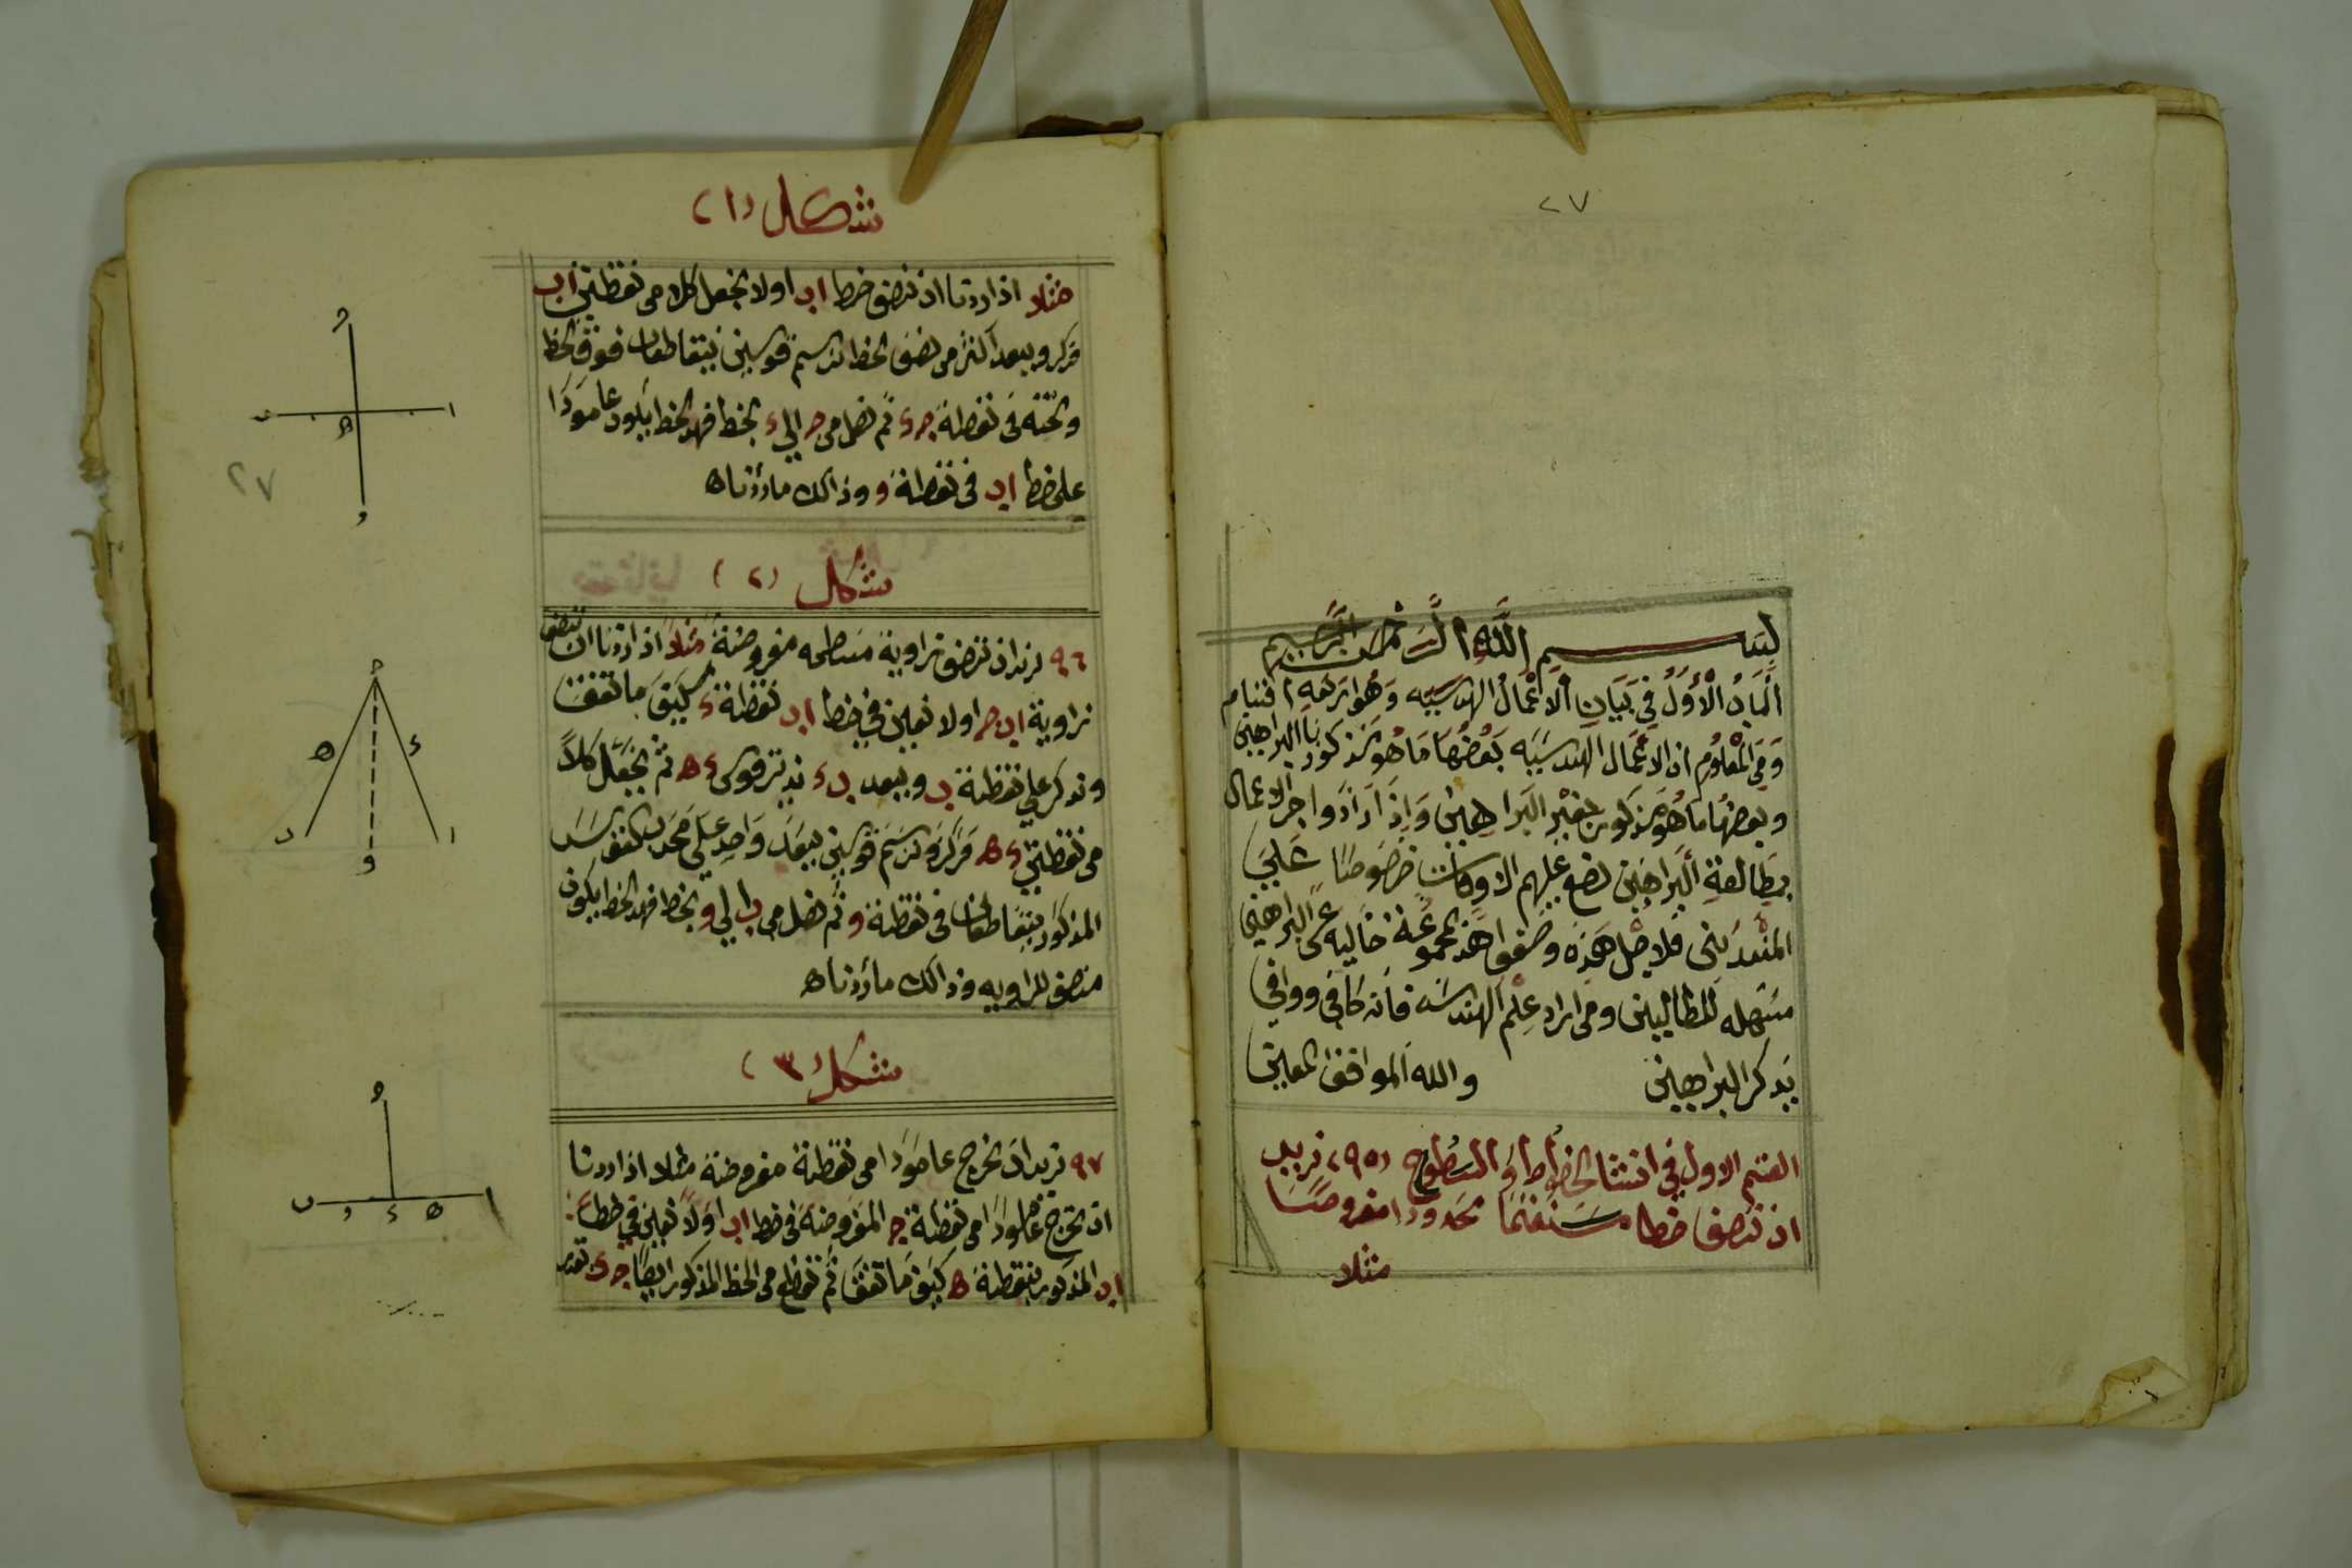 ٢٧
بسم الله الرحمن الرحيم
الباب الأول في بيان الاعمال الهندسيه وهو اربعه اقسام
ومن المعلوم ان الاعمال الهندسيه بعضها ما هو مذكور باالبراهين
وبعضها ما هو مذكور بغير البراهين واذا ارادوا اجر الاعمال
بمطالعة البراهين تضع عليهم الاوقات خصوصا علي
المبتديين فلاجل هذه وضعوا هذ مجموعة خاليه عن البراهين
مسهله للطالبين ومن اراد علم الهندسه فانه كافي ووافي
بذكر البراهين والله الموافق المعين
القسم الاول في انشا الخطوط والسطوح (٩٥) نريد
ان ننصف خطا مستقيما محدودا مفروضا
مثلا
شكل (١)
مثلا اذا اردنا ان ننصف خط اب اولا نجعل كلا من نقطتين اب
مركز وببعد اكثر من نصف الخط نرسم قوسين يتقاطعان فوق الخط
وتحته في نقطة جء ثم نصل من ج الي ء بخط فهذ الخط يكون عامودا
على خط اب في نقطة و وذالك ماردناه
شكل (٢)
٩٦ نريد ان ننصف زاوية مسطحه مفروضة مثلا اذا اردنا ان ننصف
زاوية اب ج اولا نعين في خط اب نقطة ء كيف ما تفق
ونركز علي نقطة ب وببعد بء ندير قوس ءه ثم نجعل كلا
من نقطتي ءه مركز ونرسم قوسين ببعد واحد علي محدب القوس
المذكور يتقاطعان في نقطة و ثم نصل من ب الي و بخط فهذ الخط يكون
منصف للزاويه وذالك ماردناه
شكل (٣)
٩٧ نريد ان نخرج عامودا من نقطة مفروضة مثلا اذا اردنا
ان نخرج عامودا من نقطة ج المفروضة في خط اب اولا نعين في خط
اب المذكور نقطة ه كيف ما تفق ثم نقطع من الخط المذكور ايضا جء بقدر
ج
ا
ب
ه
ء
٢٧
ج
ه
ء
ب
ا
و
ج
ب
و
ء
ه
ا